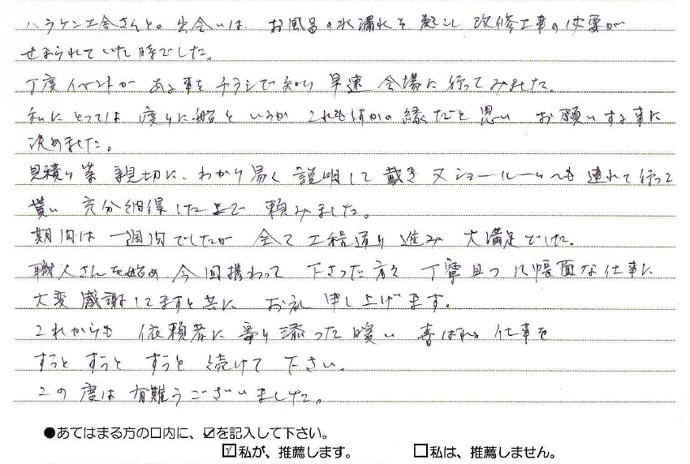 ハラケン工舎さんとの出会いは、お風呂の水漏れを起こし改修工事の必要が
せまられていた時でした。
丁度イベントがある事をチラシで知り早速会場に行ってみました。
私にとっては渡りに船というかこれも何かの縁だと思いお願いする事に
決めました。
見積り等親切に、わかり易く説明して戴き又ショールームへも連れて行って
貰い充分納得した上で頼みました。
期間は一週間でしたが全て工程通り進み大満足でした。
職人さんを始め今回携わって下さった方々丁寧且つ几帳面な仕事に
大変感謝してますと共にお礼申し上げます。
これからも依頼者に寄り添った暖い喜ばれる仕事を
ずっとずっとずっと続けて下さい。
この度は有難うございました。
●あてはまる方の口内に、☑を記入して下さい。
☑私が、推薦します。 □私は、推薦しません。